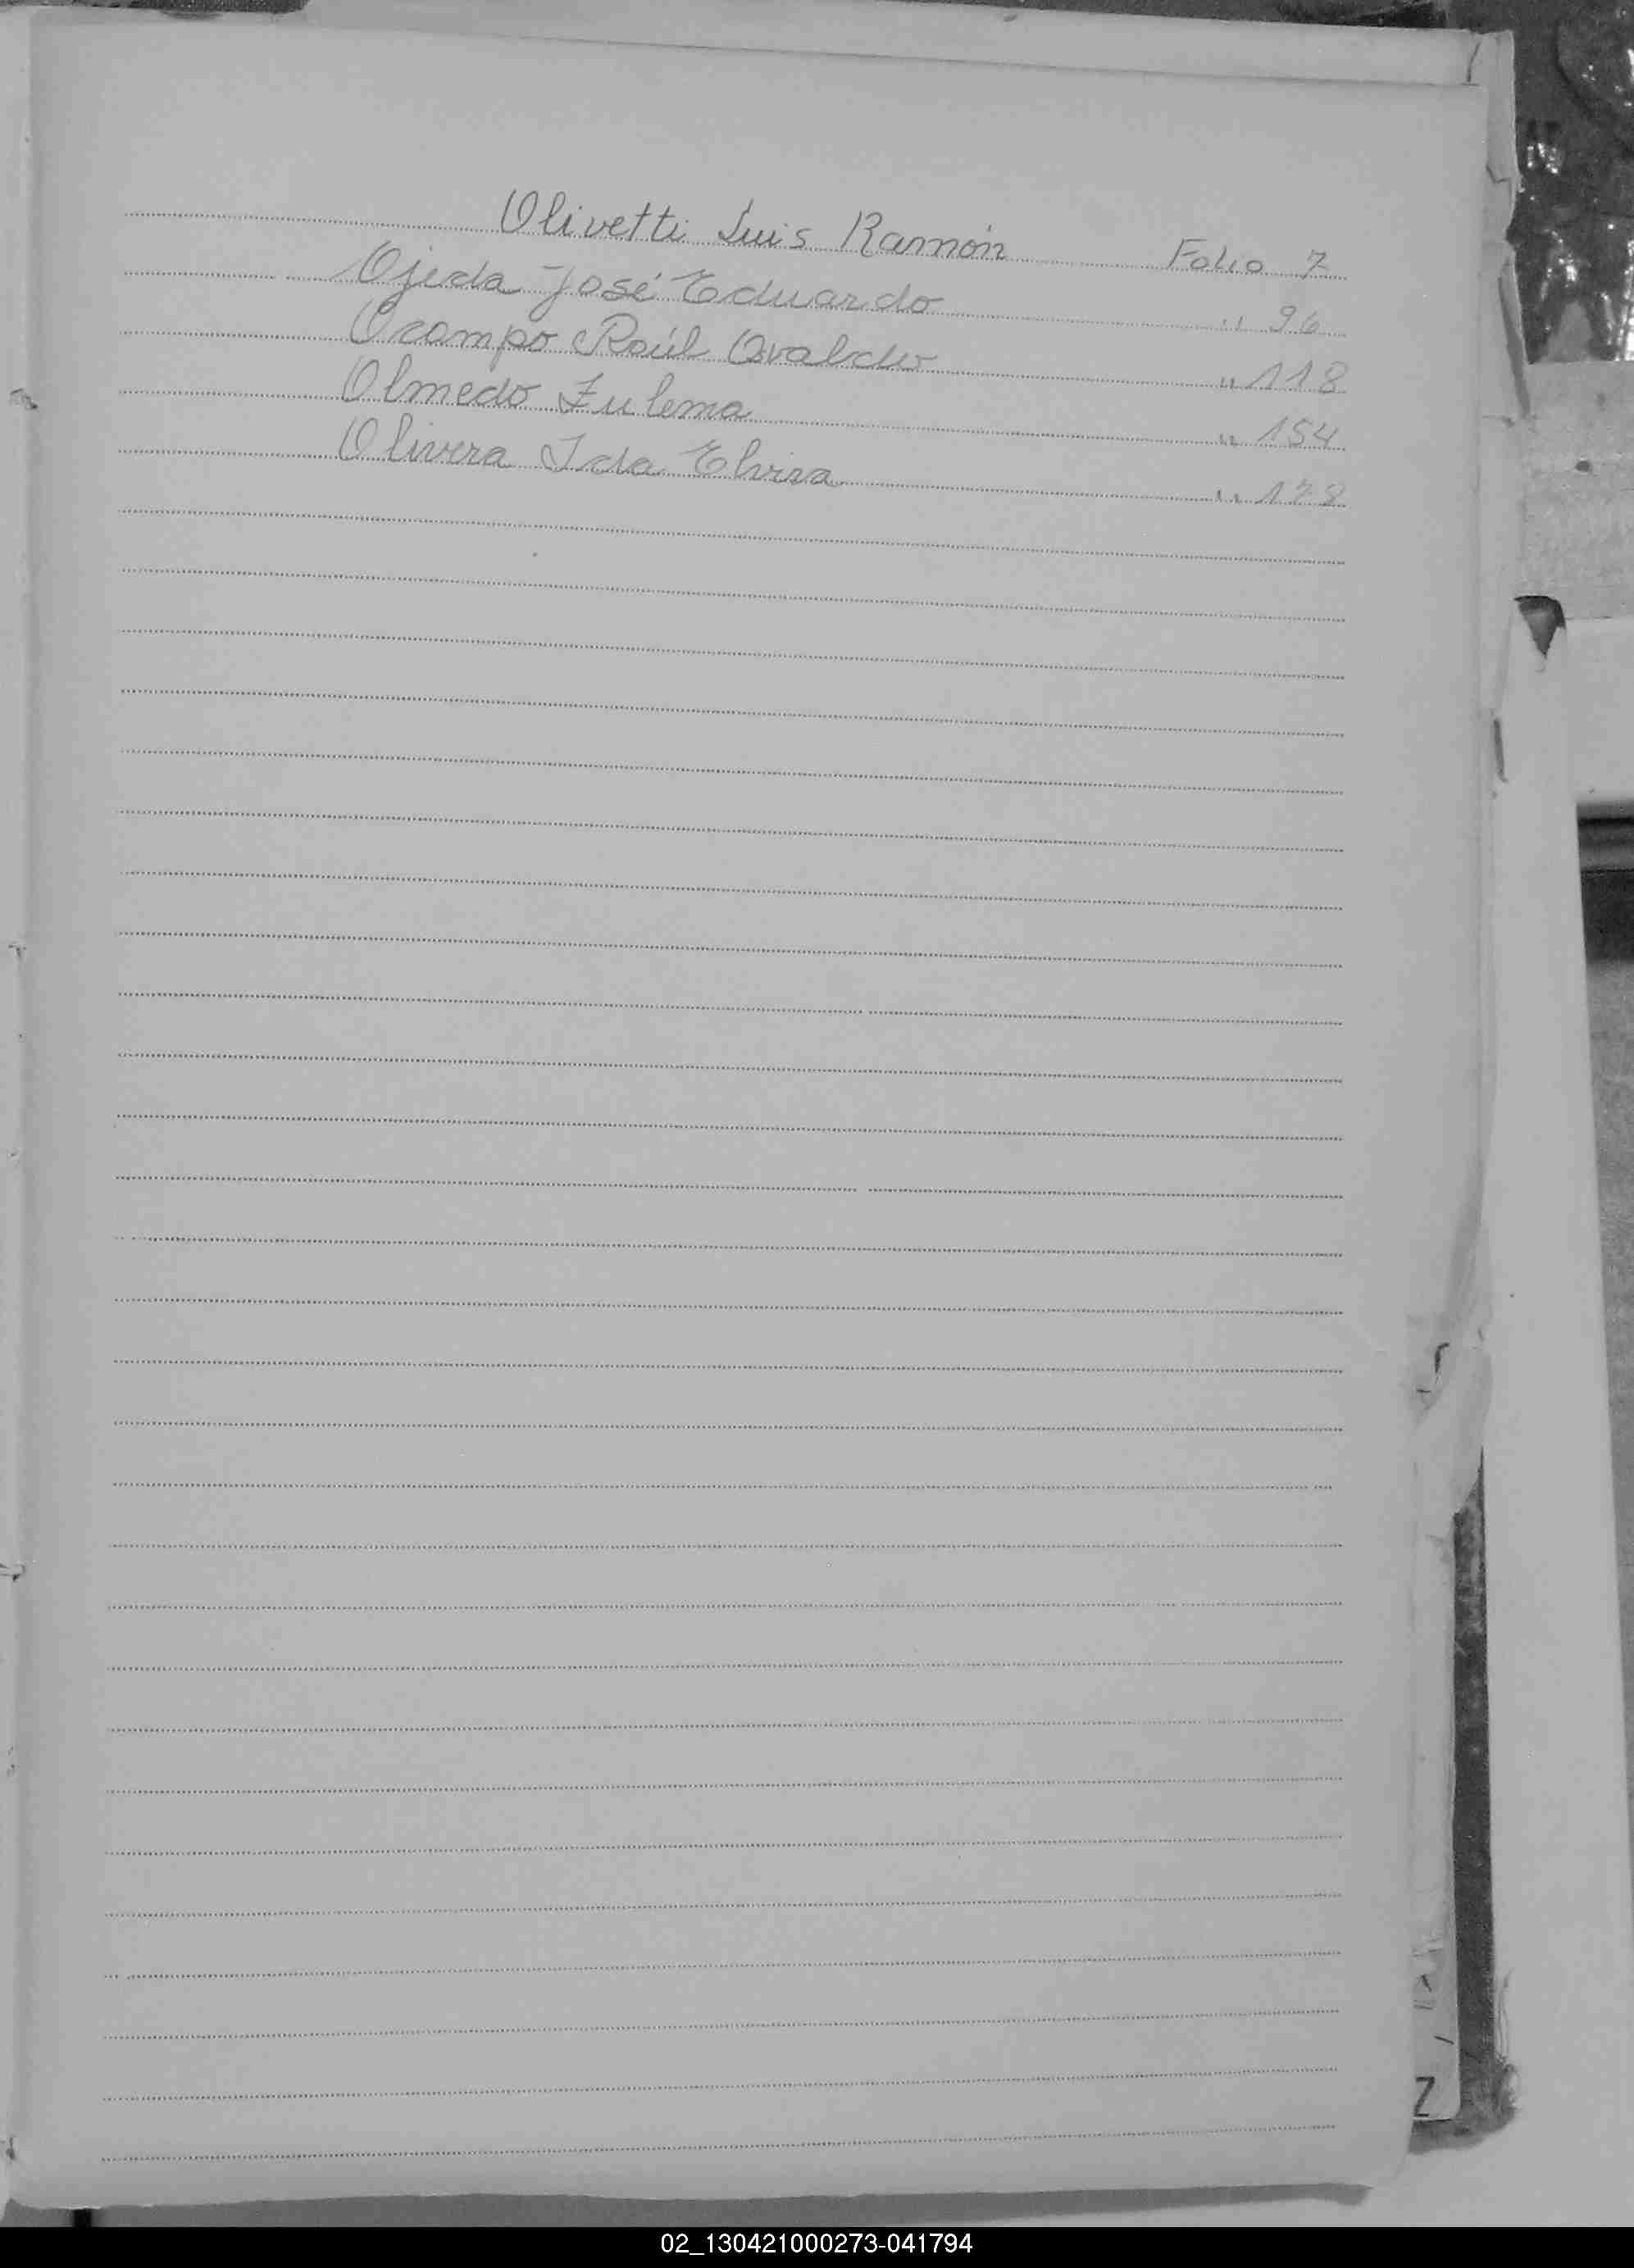 Olivetti Luis Ramón Folio 7
Ojeda José Eduardo " 96
Ocampo Raúl Osvaldo " 118
Olmedo Zulema " 154
Olivera Ida Elvira " 178
Z
02_130421000273-041794